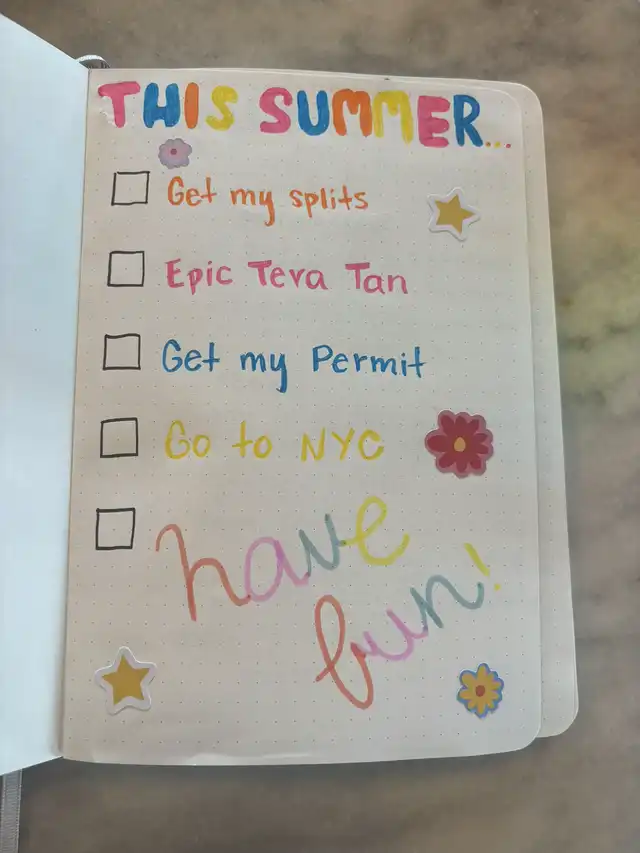 THIS SUMMER...
Get my splits
Epic Teva Tan
Get my Permit
Go to NYC
have
fun!